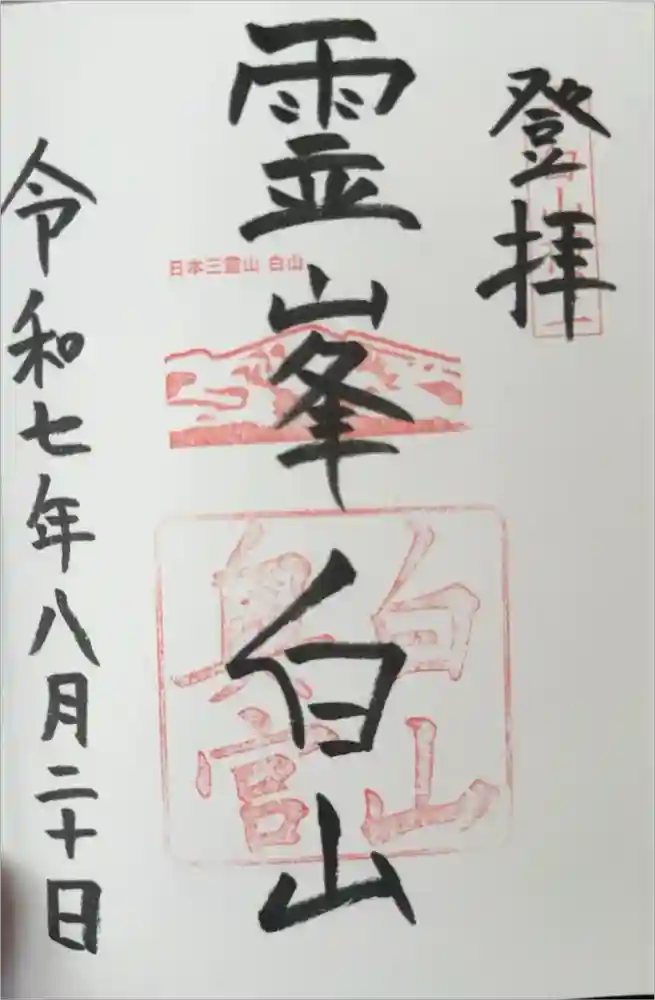 登拝
霊峯白山
日本三霊山 白山
白山
奥宮
令和七年八月二十日